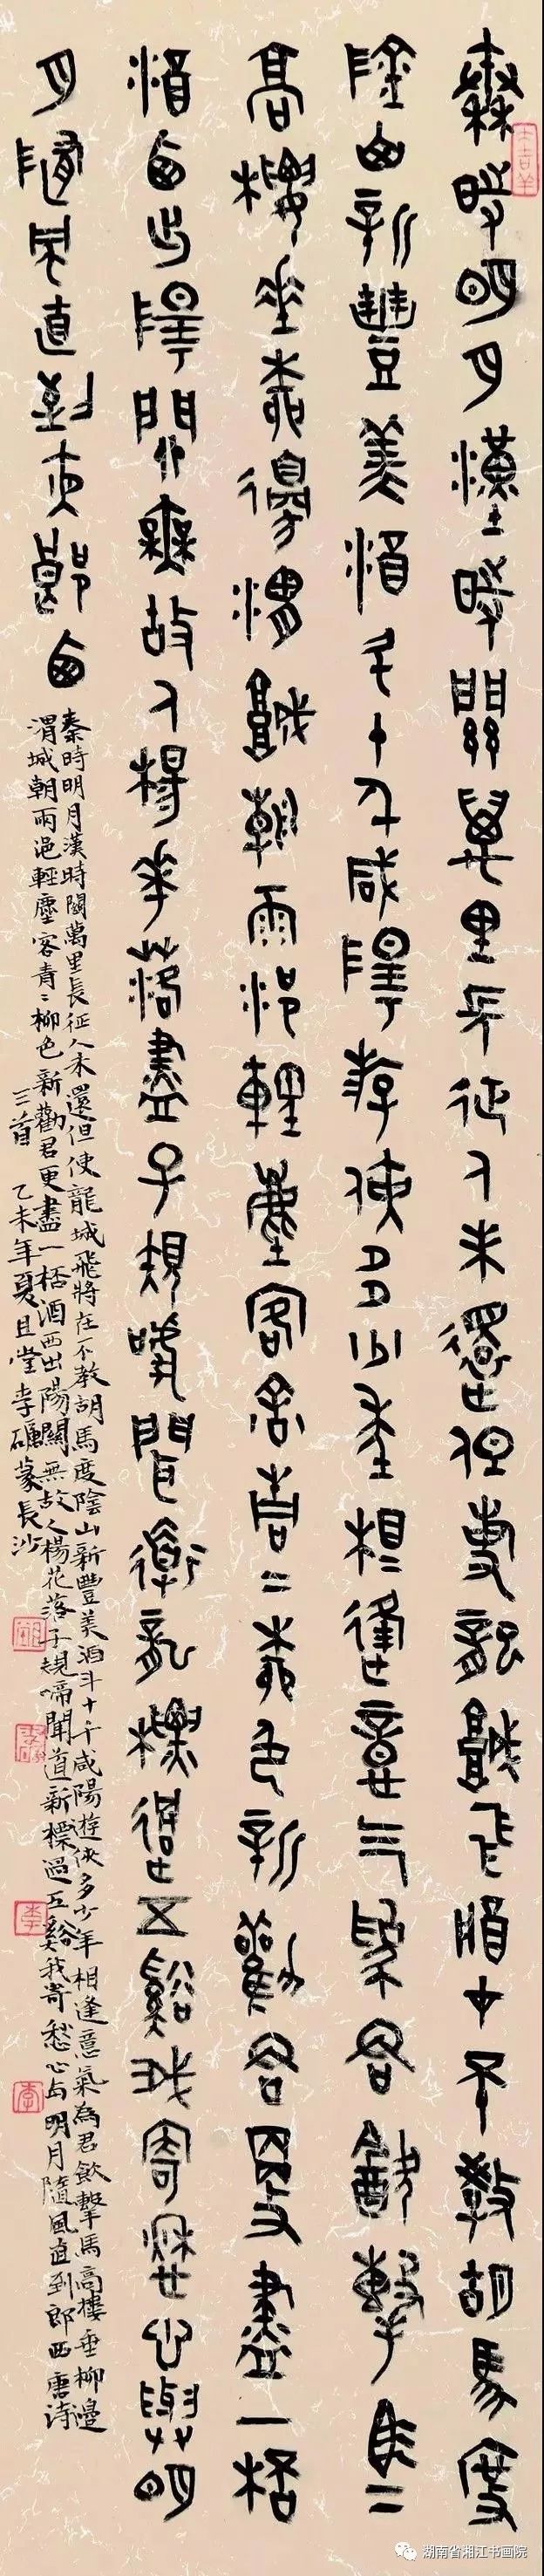 秦時明月漢時關萬里長征人未還但使龍城飛將在不教胡馬度
陰山新豐美酒斗十千咸陽遊俠多少年相逢意气為君飲擊馬二
高樓垂柳邊渭城朝雨浥輕塵客舍青二柳色新勸君更盡一栝
酒西出陽關無故人楊花落盡子規啼聞道龍標過五谿我寄愁心與明
月隨風直到夜郎西
秦時明月漢時關萬里長征人未還但使龍城飛將在不教胡馬度陰山新豐美酒斗十千咸陽遊俠多少年相逢意氣為君飲擊馬高樓垂柳邊
渭城朝雨浥輕塵客青〻柳色新勸君更盡一栝酒西出陽關無故人楊花落子規啼聞道新標過五谿我寄愁心与明月隨風直到郎西唐詩
三首 乙未年夏且堂李篆長沙
大吉羊
李
李
湖南省湘江书画院